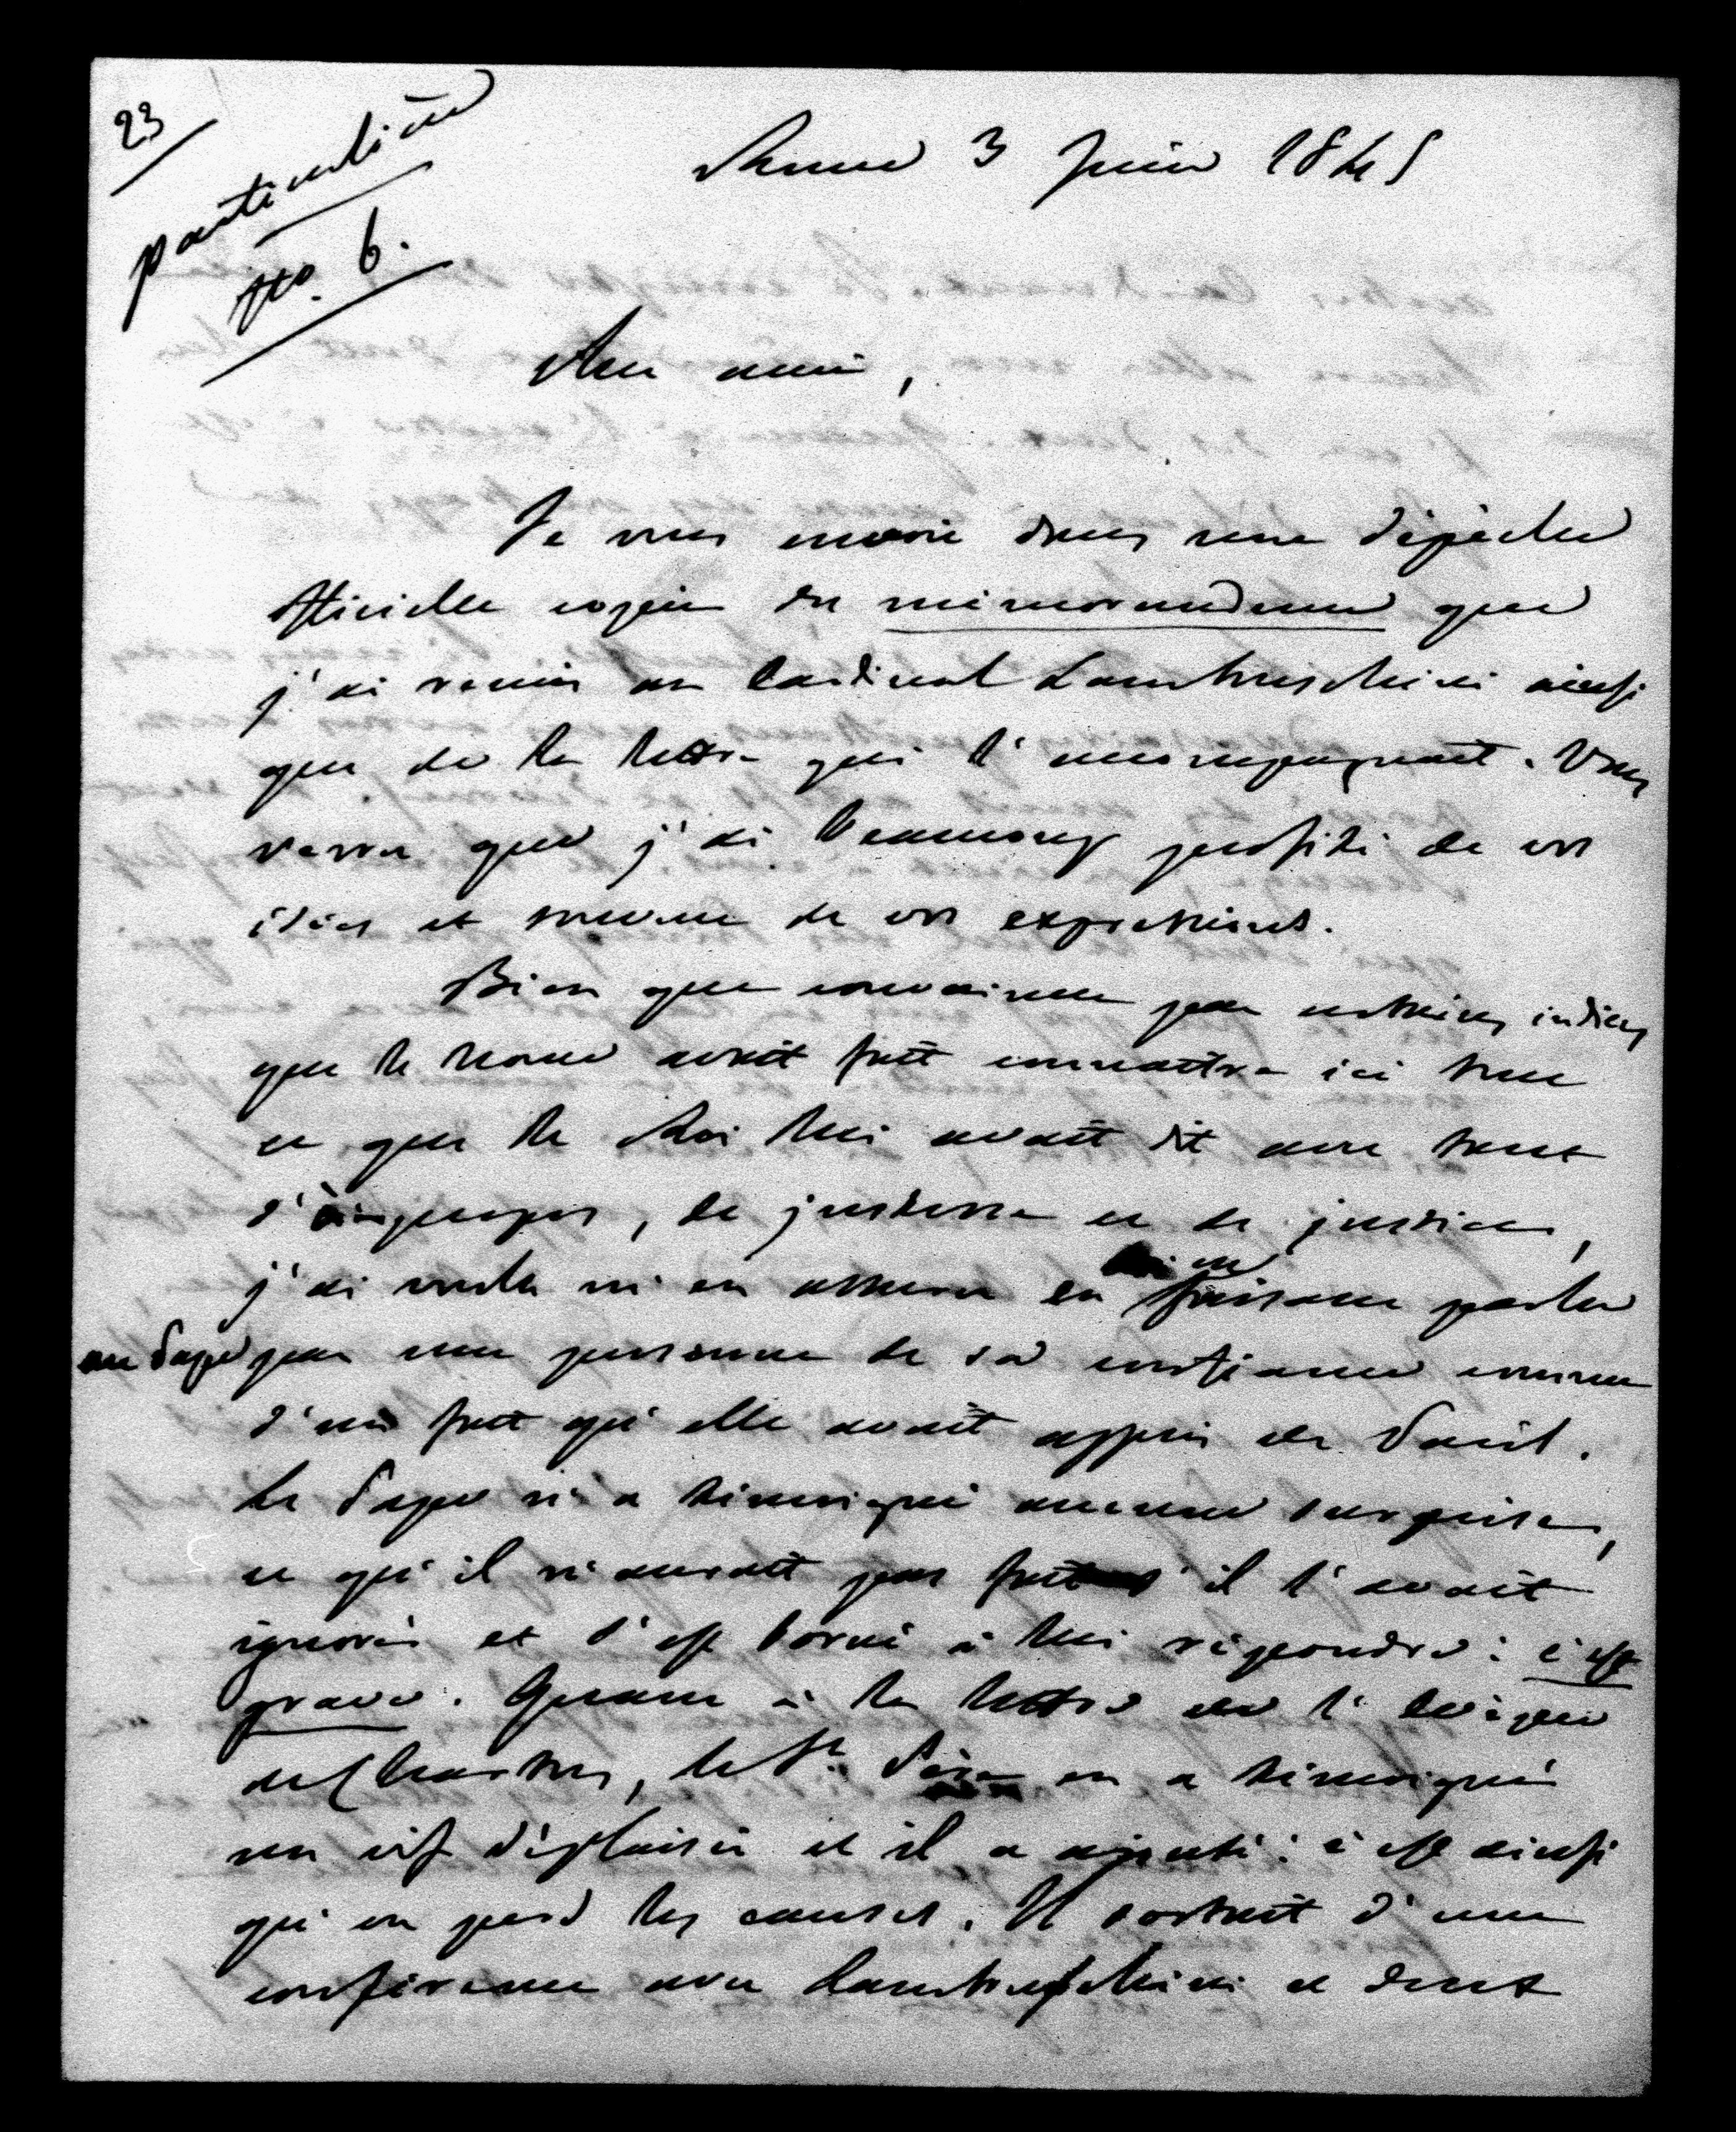 23
particulière
No. 6.
Rome 3 Juin 1845
Mon ami,
Je vous envoie dans une dépêche
officielle copie du mémorandum que
j'ai remis au Cardinal Lambruschini ainsi
que de la lettre qui l'accompagnait. Vous
verrez que j'ai beaucoup profité de vos
idées et même de vos expressions.
Bien que convaincu par certains indices
que le nonce avait fait connaître ici tout
ce que le Roi lui avait dit avec tant
d'àpropos, de justesse et de justice,
j'ai voulu m'en assurer en en faisant parler
au Pape par une personne de sa confiance comme
d'un fait qu'elle avait appris de Paris.
Le Pape n'a témoigné aucune surprise,
ce qu'il n'aurait pas fait s'il l'avait
ignoré et s'est borné à lui répondre: c'est
grave. Quant à la lettre de l'Evêque
de Chartres, le St. Père en a témoigné
un vif déplaisir et il a ajouté: c'est ainsi
qu'on perd les causes. Il sortait d'une
conférence avec Lambruschini et dont